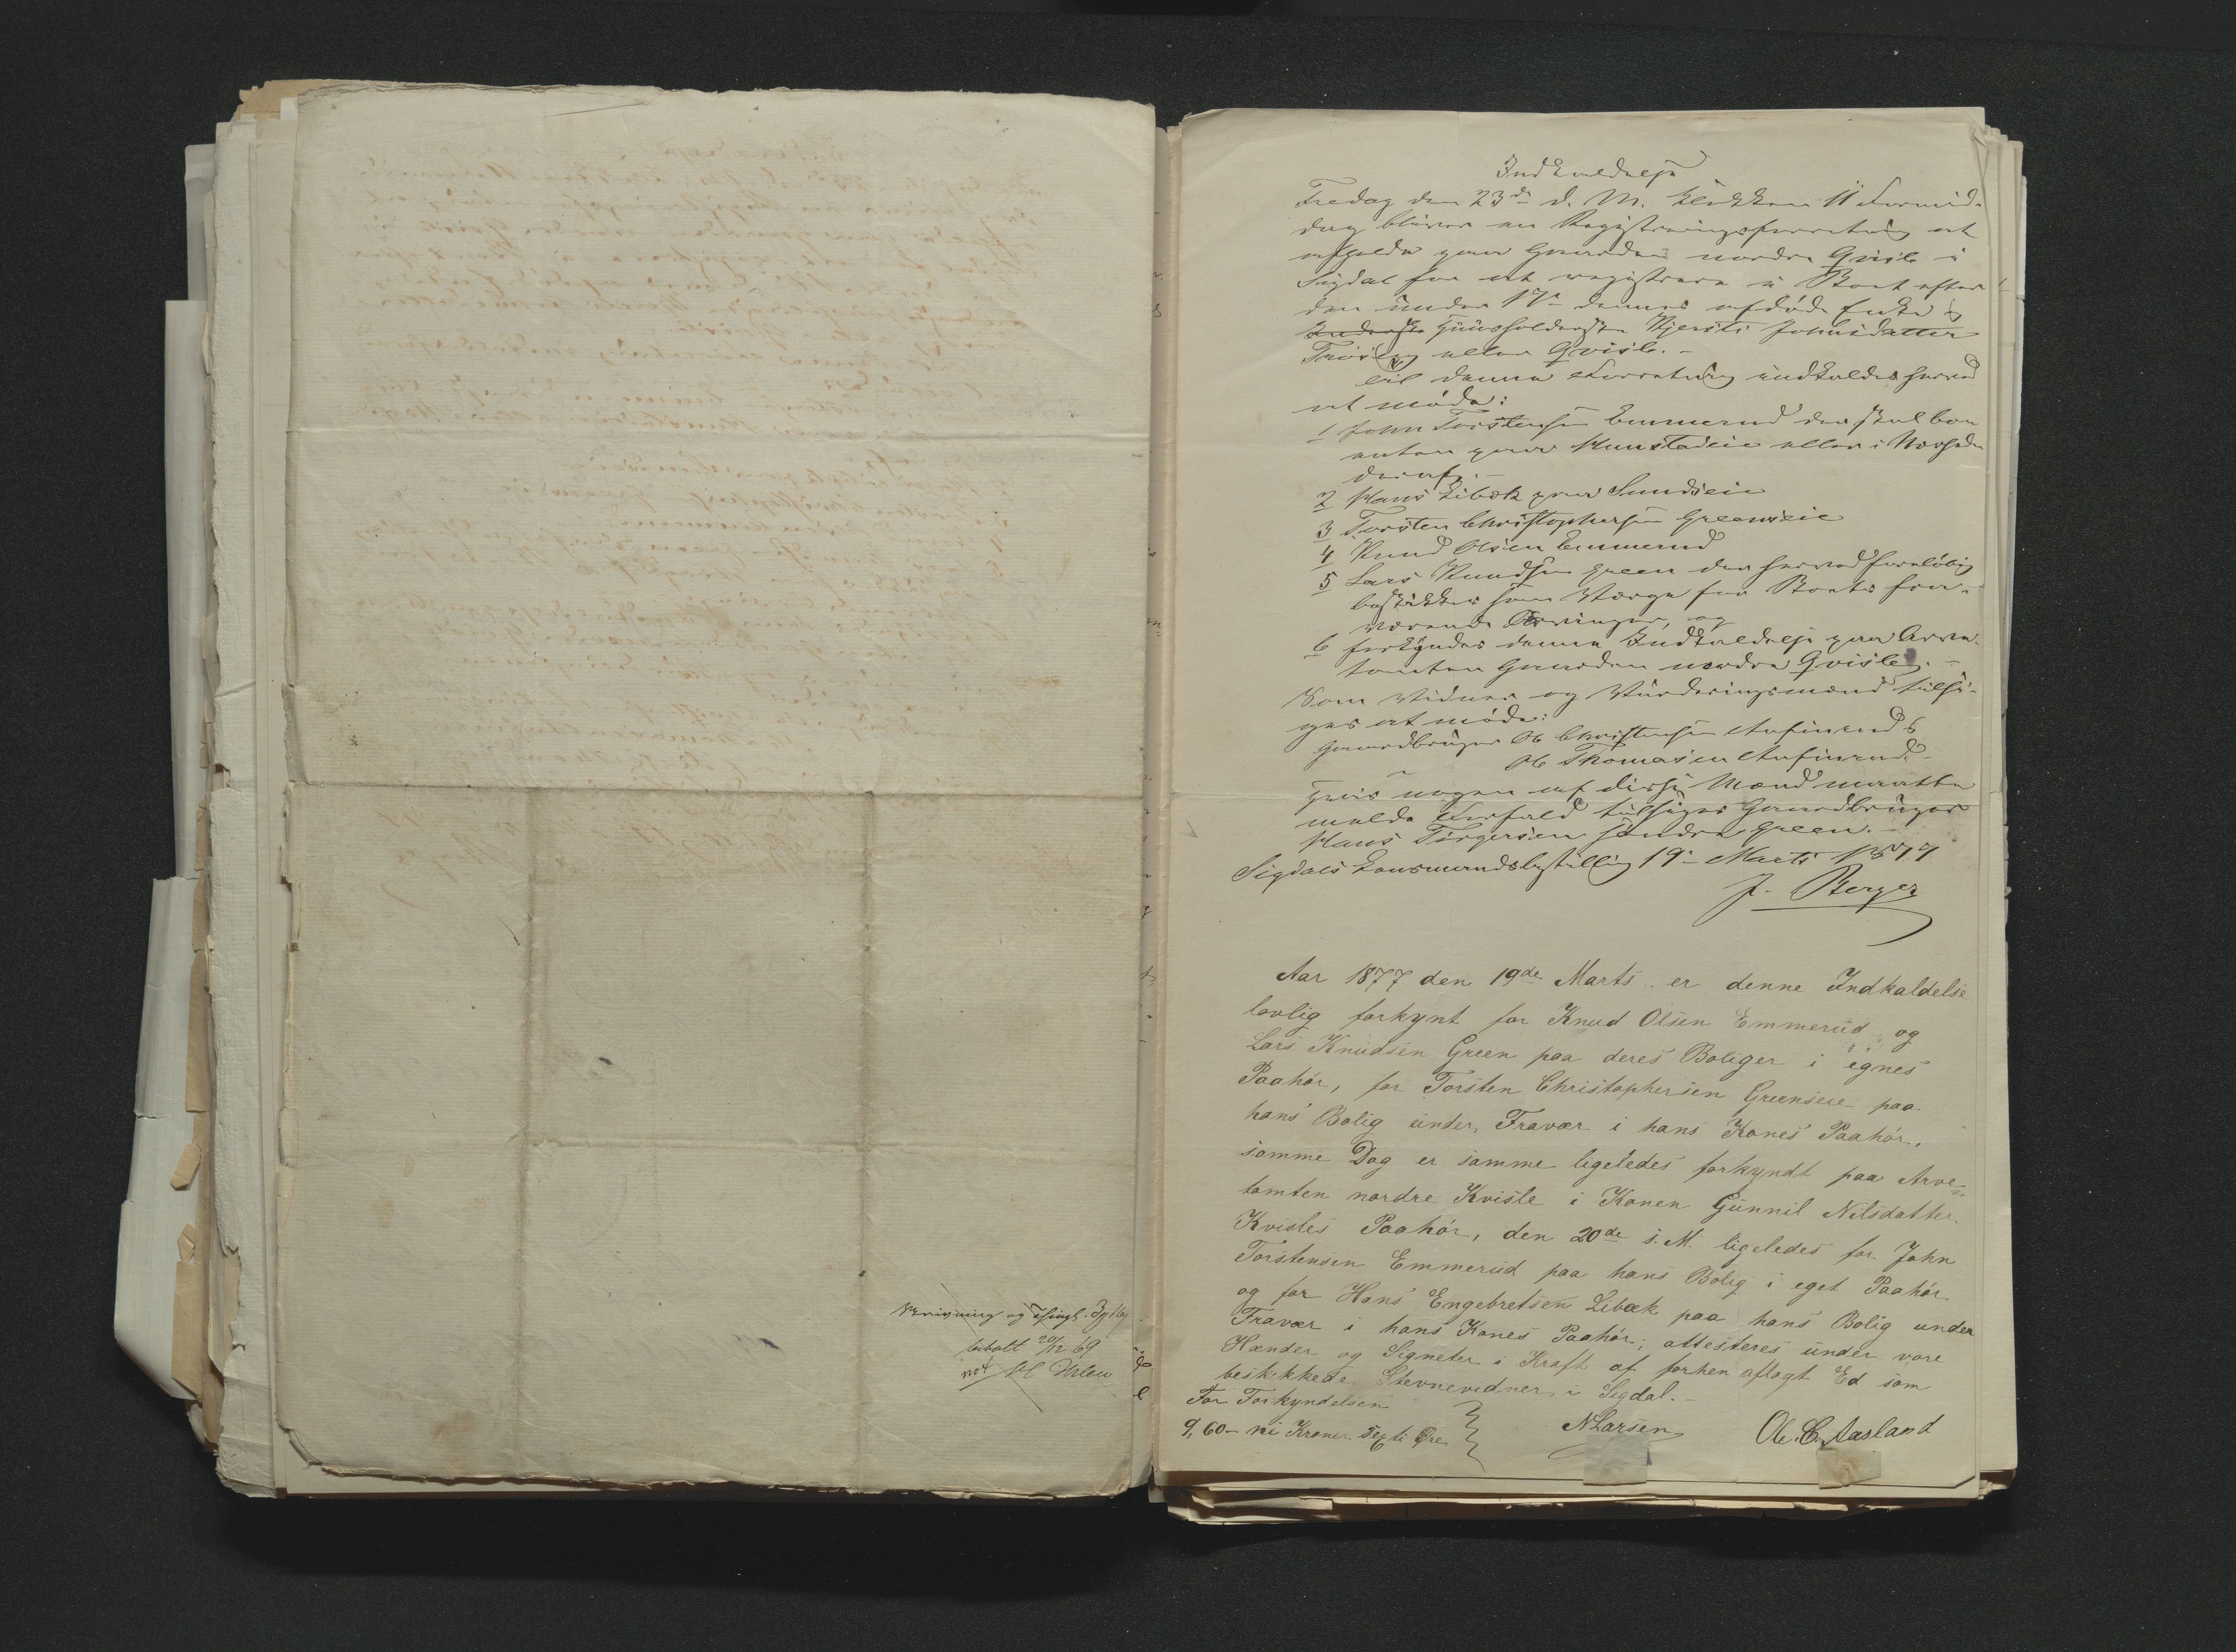 Skrivning og Thingl. 3 / 69
betalt 20/12 69
Indkaldelse
Fredag den 23de d. M. Klokken 11 Formid-
dag bliver en Registreringsforretning at
afholde paa Gaarden nordre Qvisle i
Sigdal for at registrere i Boet efter
den under 17de dennes afdøde Enke
Inderste Huusholderske Kjersti Johnsdatter
eller Qvisle.-
til denne Forretning indkaldes herved
at møde:
1 John Torstensen Emmerud der skal bo
enten paa Kunstadeie eller i Nærheden
deraf.-
2 Hans Libæk paa Sundseie
3 Torsten Christophersen Greenseie
4 Knud Olsen Emmerud
5 Lars Knudsen Green der herved foreløbig
beskikkes som Værge for Boets fra-
værende Arvinger, og
6 forkyndes denne Indkaldelse paa Arve-
tomten Gaarden nordre Qvisle.-
Som Vidner og Vurderingsmænd tilsi-
ges at møde:
Gaardbruger Ole Christensen Aufinrud &
Ole Thomasen Aufinrud.-
Hvis nogen af disse Mænd maatte
melde Forfald tilsiges Gaardbruger
Hans Torgersen søndre Green.-
Sigdals Lensmandsbestilling 19de Marts 1877
J. Berger
Aar 1877 den 19de Marts er denne Indkaldelse
lovlig forkynt for Knud Olsen Emmerud og
Lars Knudsen Green paa deres Boliger i egnes
Paahør, for Torsten Christophersen Greenseie paa
hans Bolig under Fravær i hans Kones Paahør,
samme Dag er samme ligeledes forkyndt paa Arve-
tomten nordre Kvisle i Konen Gunnil Nilsdatter
Kvisles Paahør, den 20de s. M. ligeledes for John
Torstensen Emmerud paa hans Bolig i eget Paahør
og for Hans Engebretsen Libæk paa hans Bolig under
Fravær i hans Kones Paahør; attesteres under vore
Hænder og Signeter i Kraft af forhen aflagt Ed som
beskikkede Stevnevidner i Sigdal.-
For Forkyndelsen
9,60 - ni Kroner sexti Øre
N Larsen Ole. C. Aasland